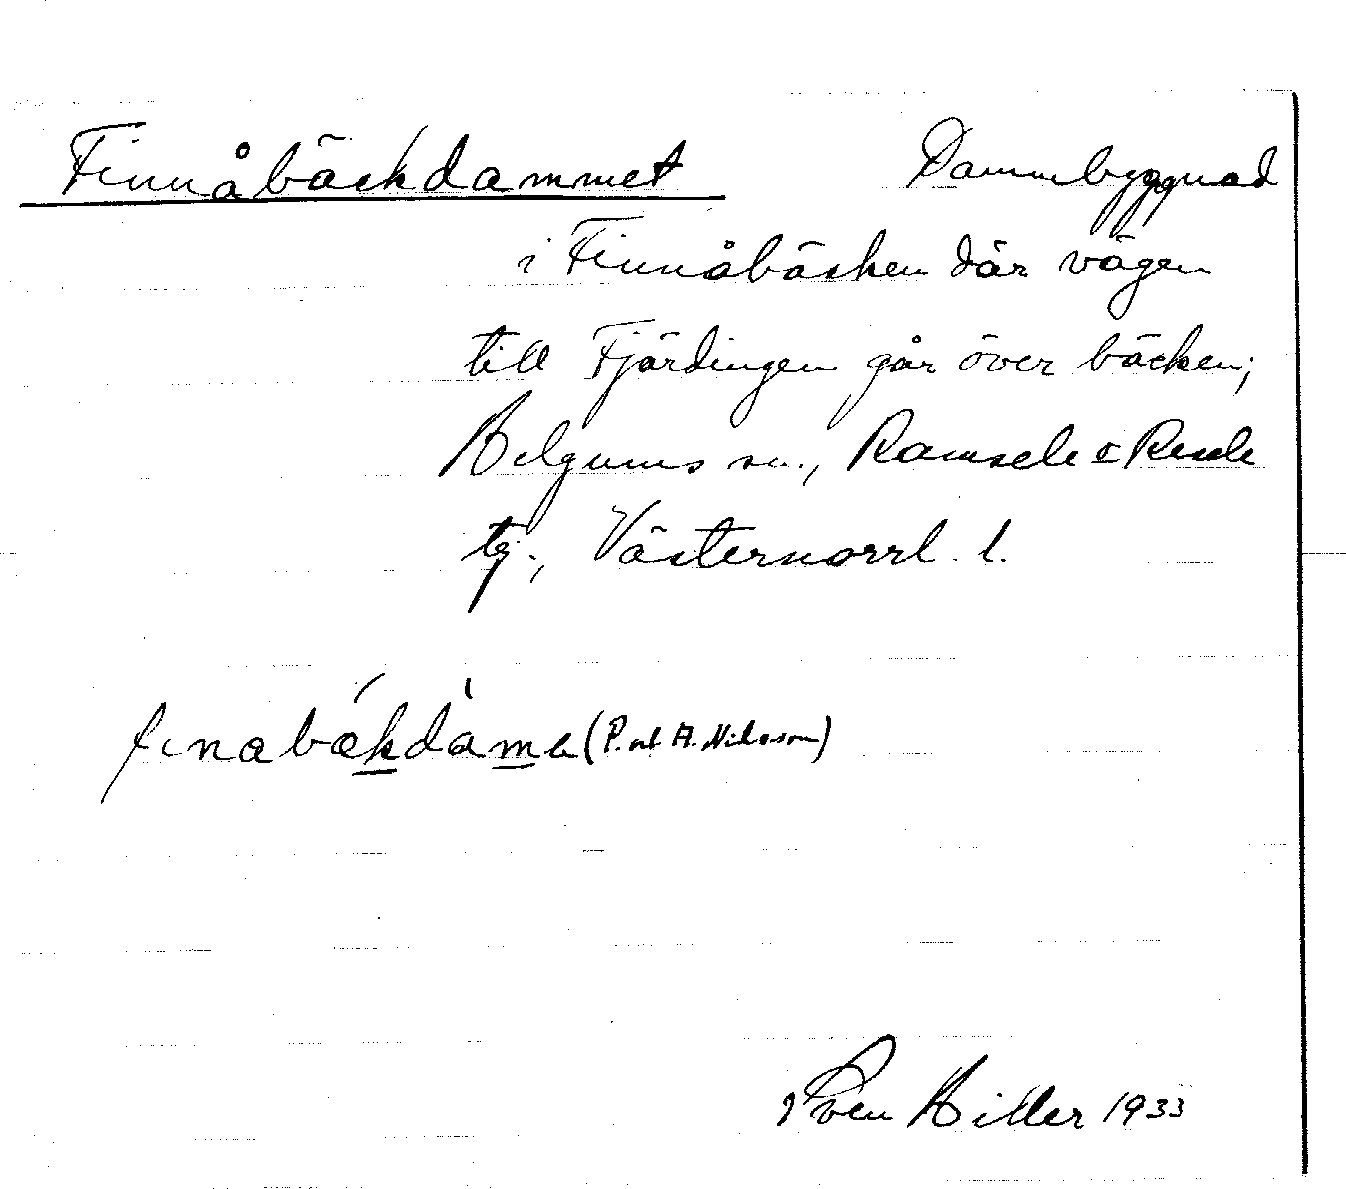 Finnåbäckdammet Dammbyggnad
i Finnåbäcken där vägen
till Fjärdingen går över bäcken;
Helgums sn., Ramsele & Resele
tg., Västernorrl. l.
finabækdàme (P. ol A. Nilsson)
Sven Hiller 1933